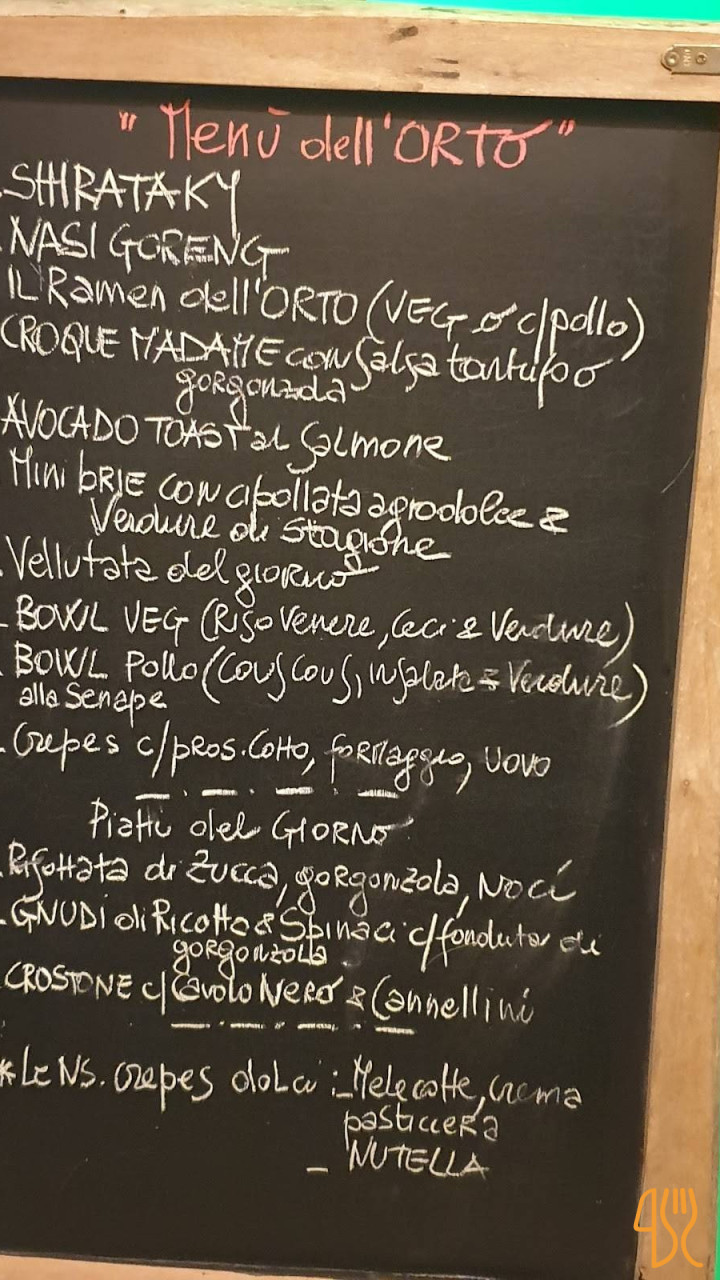 "Menù dell'ORTO"
- SHIRATAKY
- NASI GORENG
IL Ramen dell'ORTO (VEG o c/pollo)
CROQUE MADAME con Salsa tartufo o
gorgonzola
AVOCADO TOAST al Salmone
Mini BRIE con cipollata agrodolce &
Verdure di Stagione
- Vellutata del giorno
- BOWL VEG (Riso Venere, Ceci & Verdure)
- BOWL Pollo (Cous Cous, insalata & Verdure)
alla Senape
- Crepes c/pros. cotto, formaggio, uovo
Piatti del GIORNO
- Risottata di zucca, gorgonzola, Noci
- GNUDI di Ricotta & Spinaci c/fonduta di
gorgonzola
CROSTONE c/Cavolo Nero & Cannellini
* Le NS. crepes dolci: - Mele cotte, crema
pasticcera
- NUTELLA